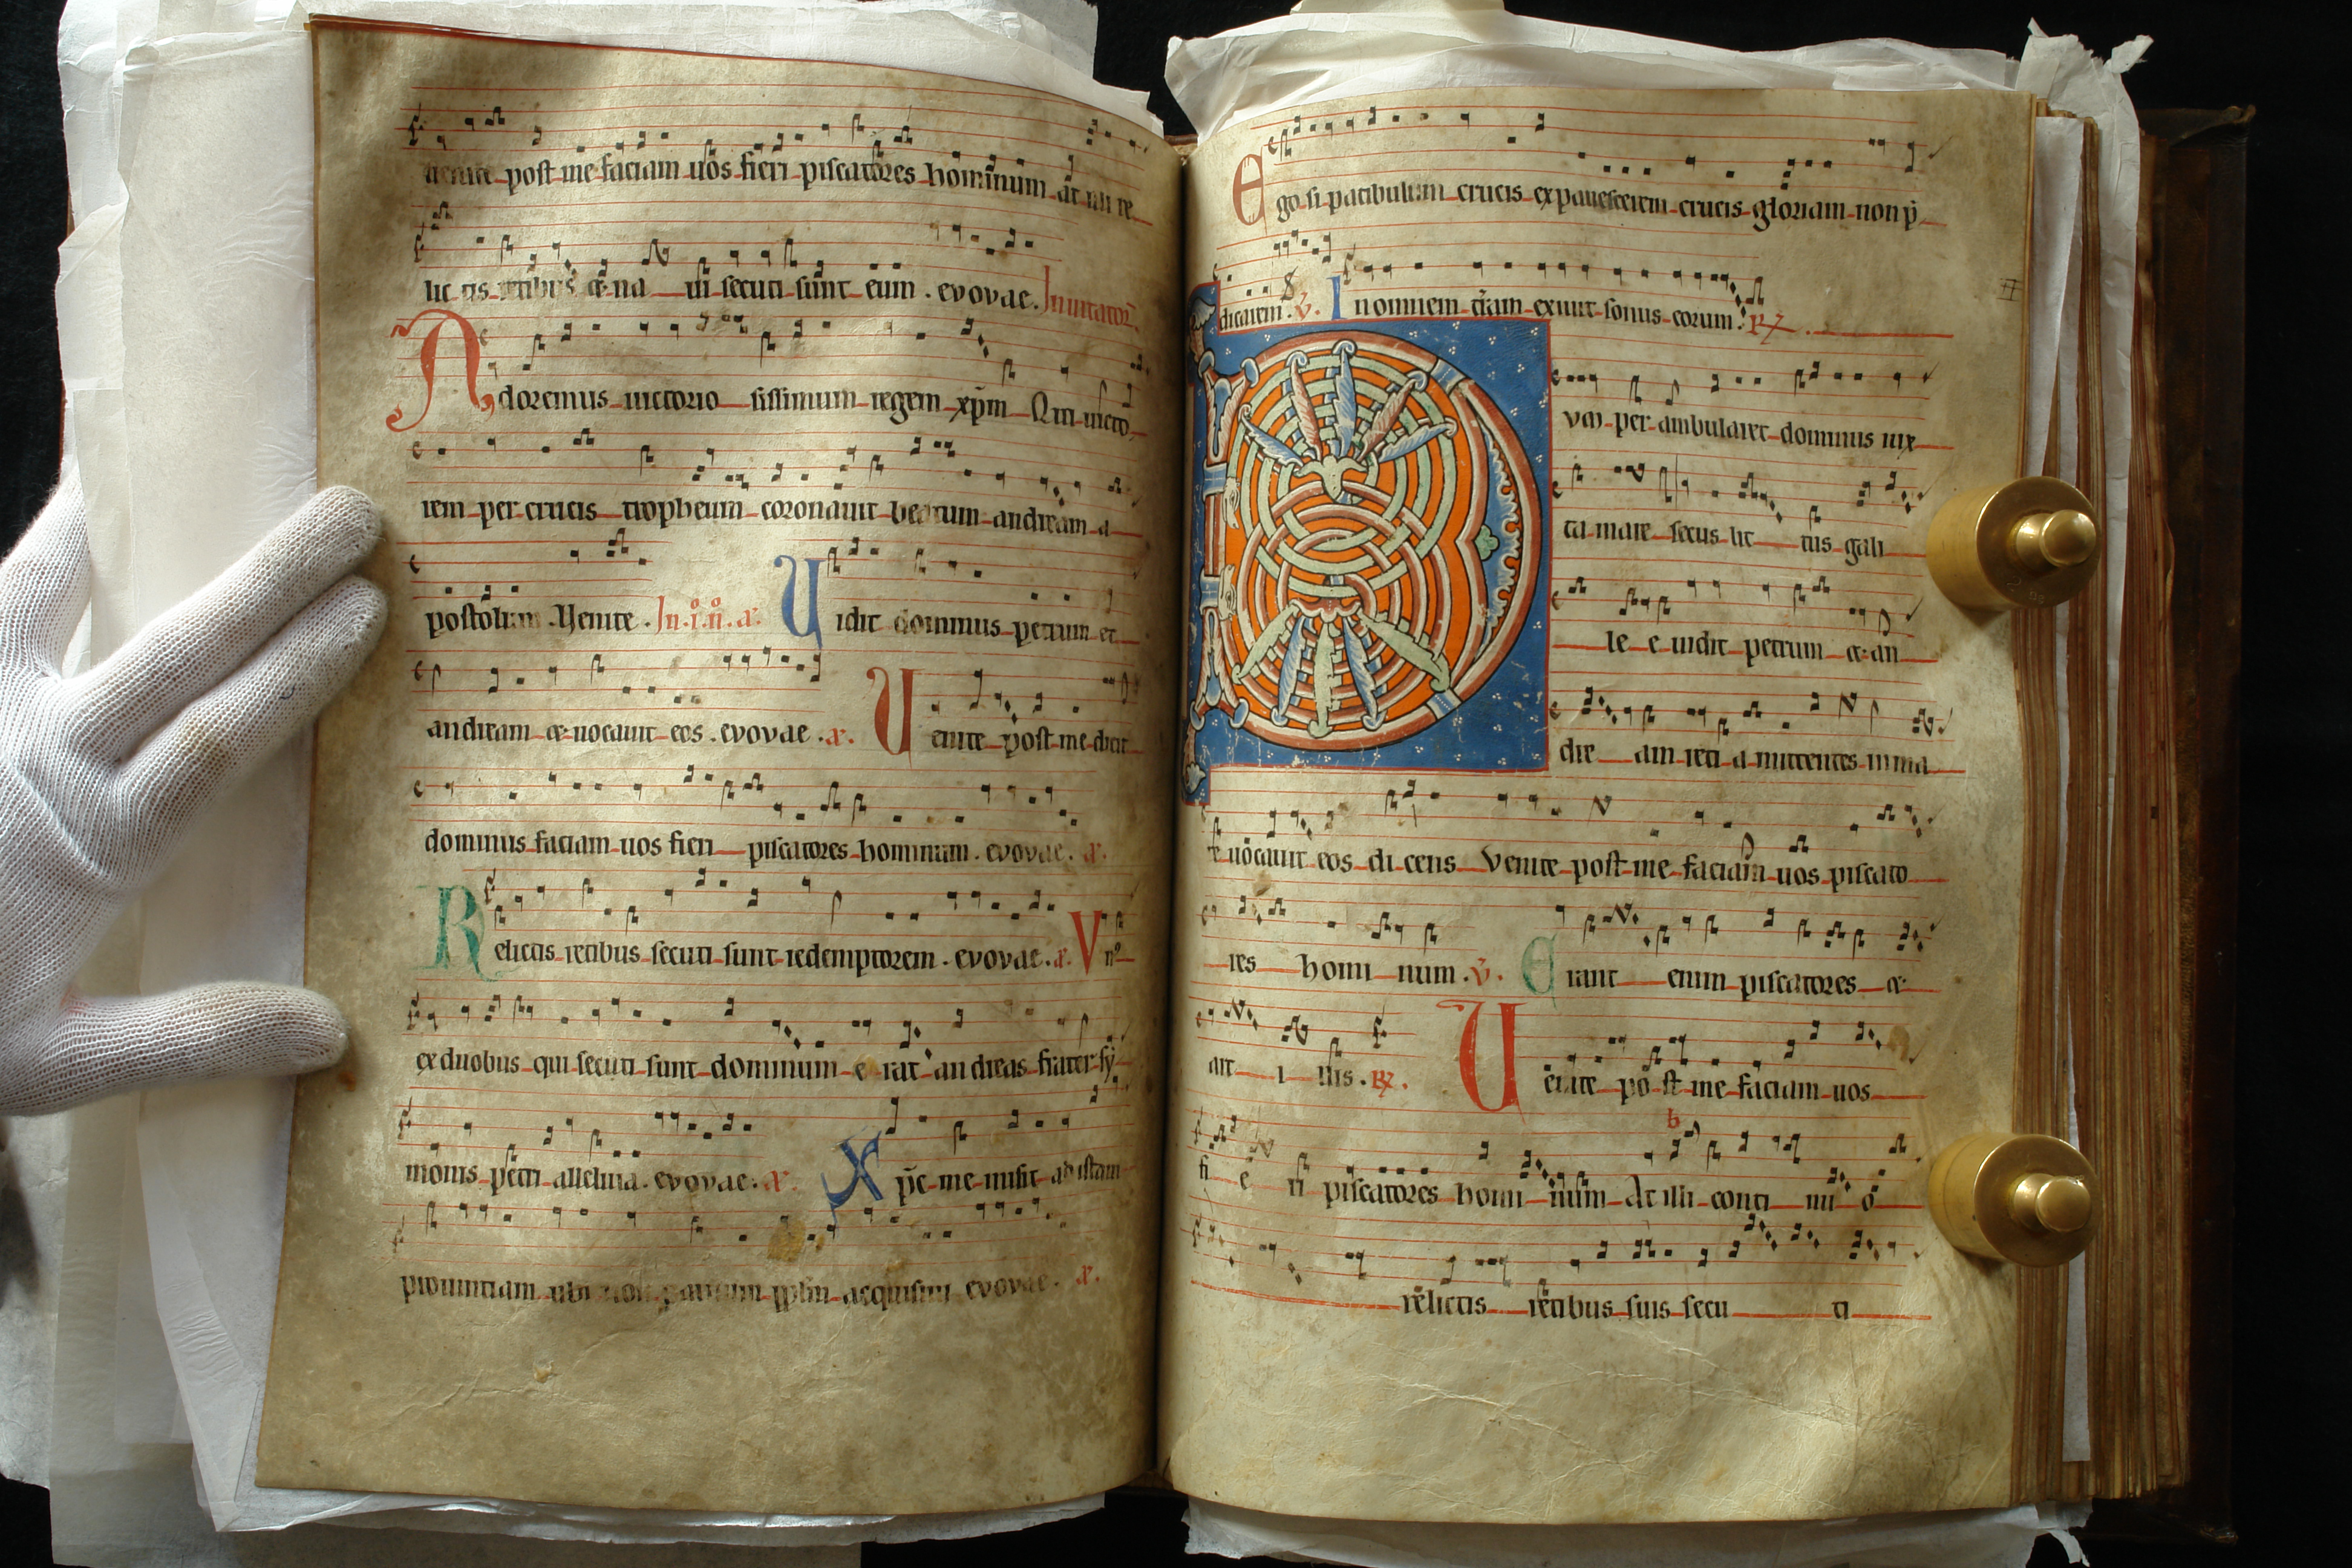 uenite post me faciam uos fieri piscatores hominum at illi re
lic tis retibus et na ui secuti sunt eum . evovae . Inuitator̄.
Adoremus uictorio sissimum regem xp̄m Qui uicto
rem per crucis tropheum coronauit beatum andream a
postolum Venite . In .i. n̄. a. Uidit dominus petrum et
andream et uocauit eos . evovae . a. Uenite post me dicit
dominus faciam uos fieri piscatores hominum . evovae . a.
Relictis retibus secuti sunt redemptorem . evovae . a. Vnꝰ
ex duobus qui secuti sunt dominum e rat andreas frater sy
monis petri alleluia . evovae . a. Xp̄c me misit ad istam
prouintiam ubi non paruum pplm acquisiui evovae . a.
Ego si patibulum crucis expauescerem crucis gloriam non p̄
dicarem . v̄. In omnem t̄ram exiuit sonus eorum . R̄.
Dvm per ambularet dominus iux
ta mare secus lit tus gali
le e uidit petrum et an
dre am reti a mittentes in ma
re uocauit eos di cens Venite post me faciam uos piscato
res homi num . v̄. Erant enim piscatores et
ait i llis . R̄. Uenite po st me faciam uos
fi e ri piscatores homi num At illi conti nu o
relictis retibus suis secu ti